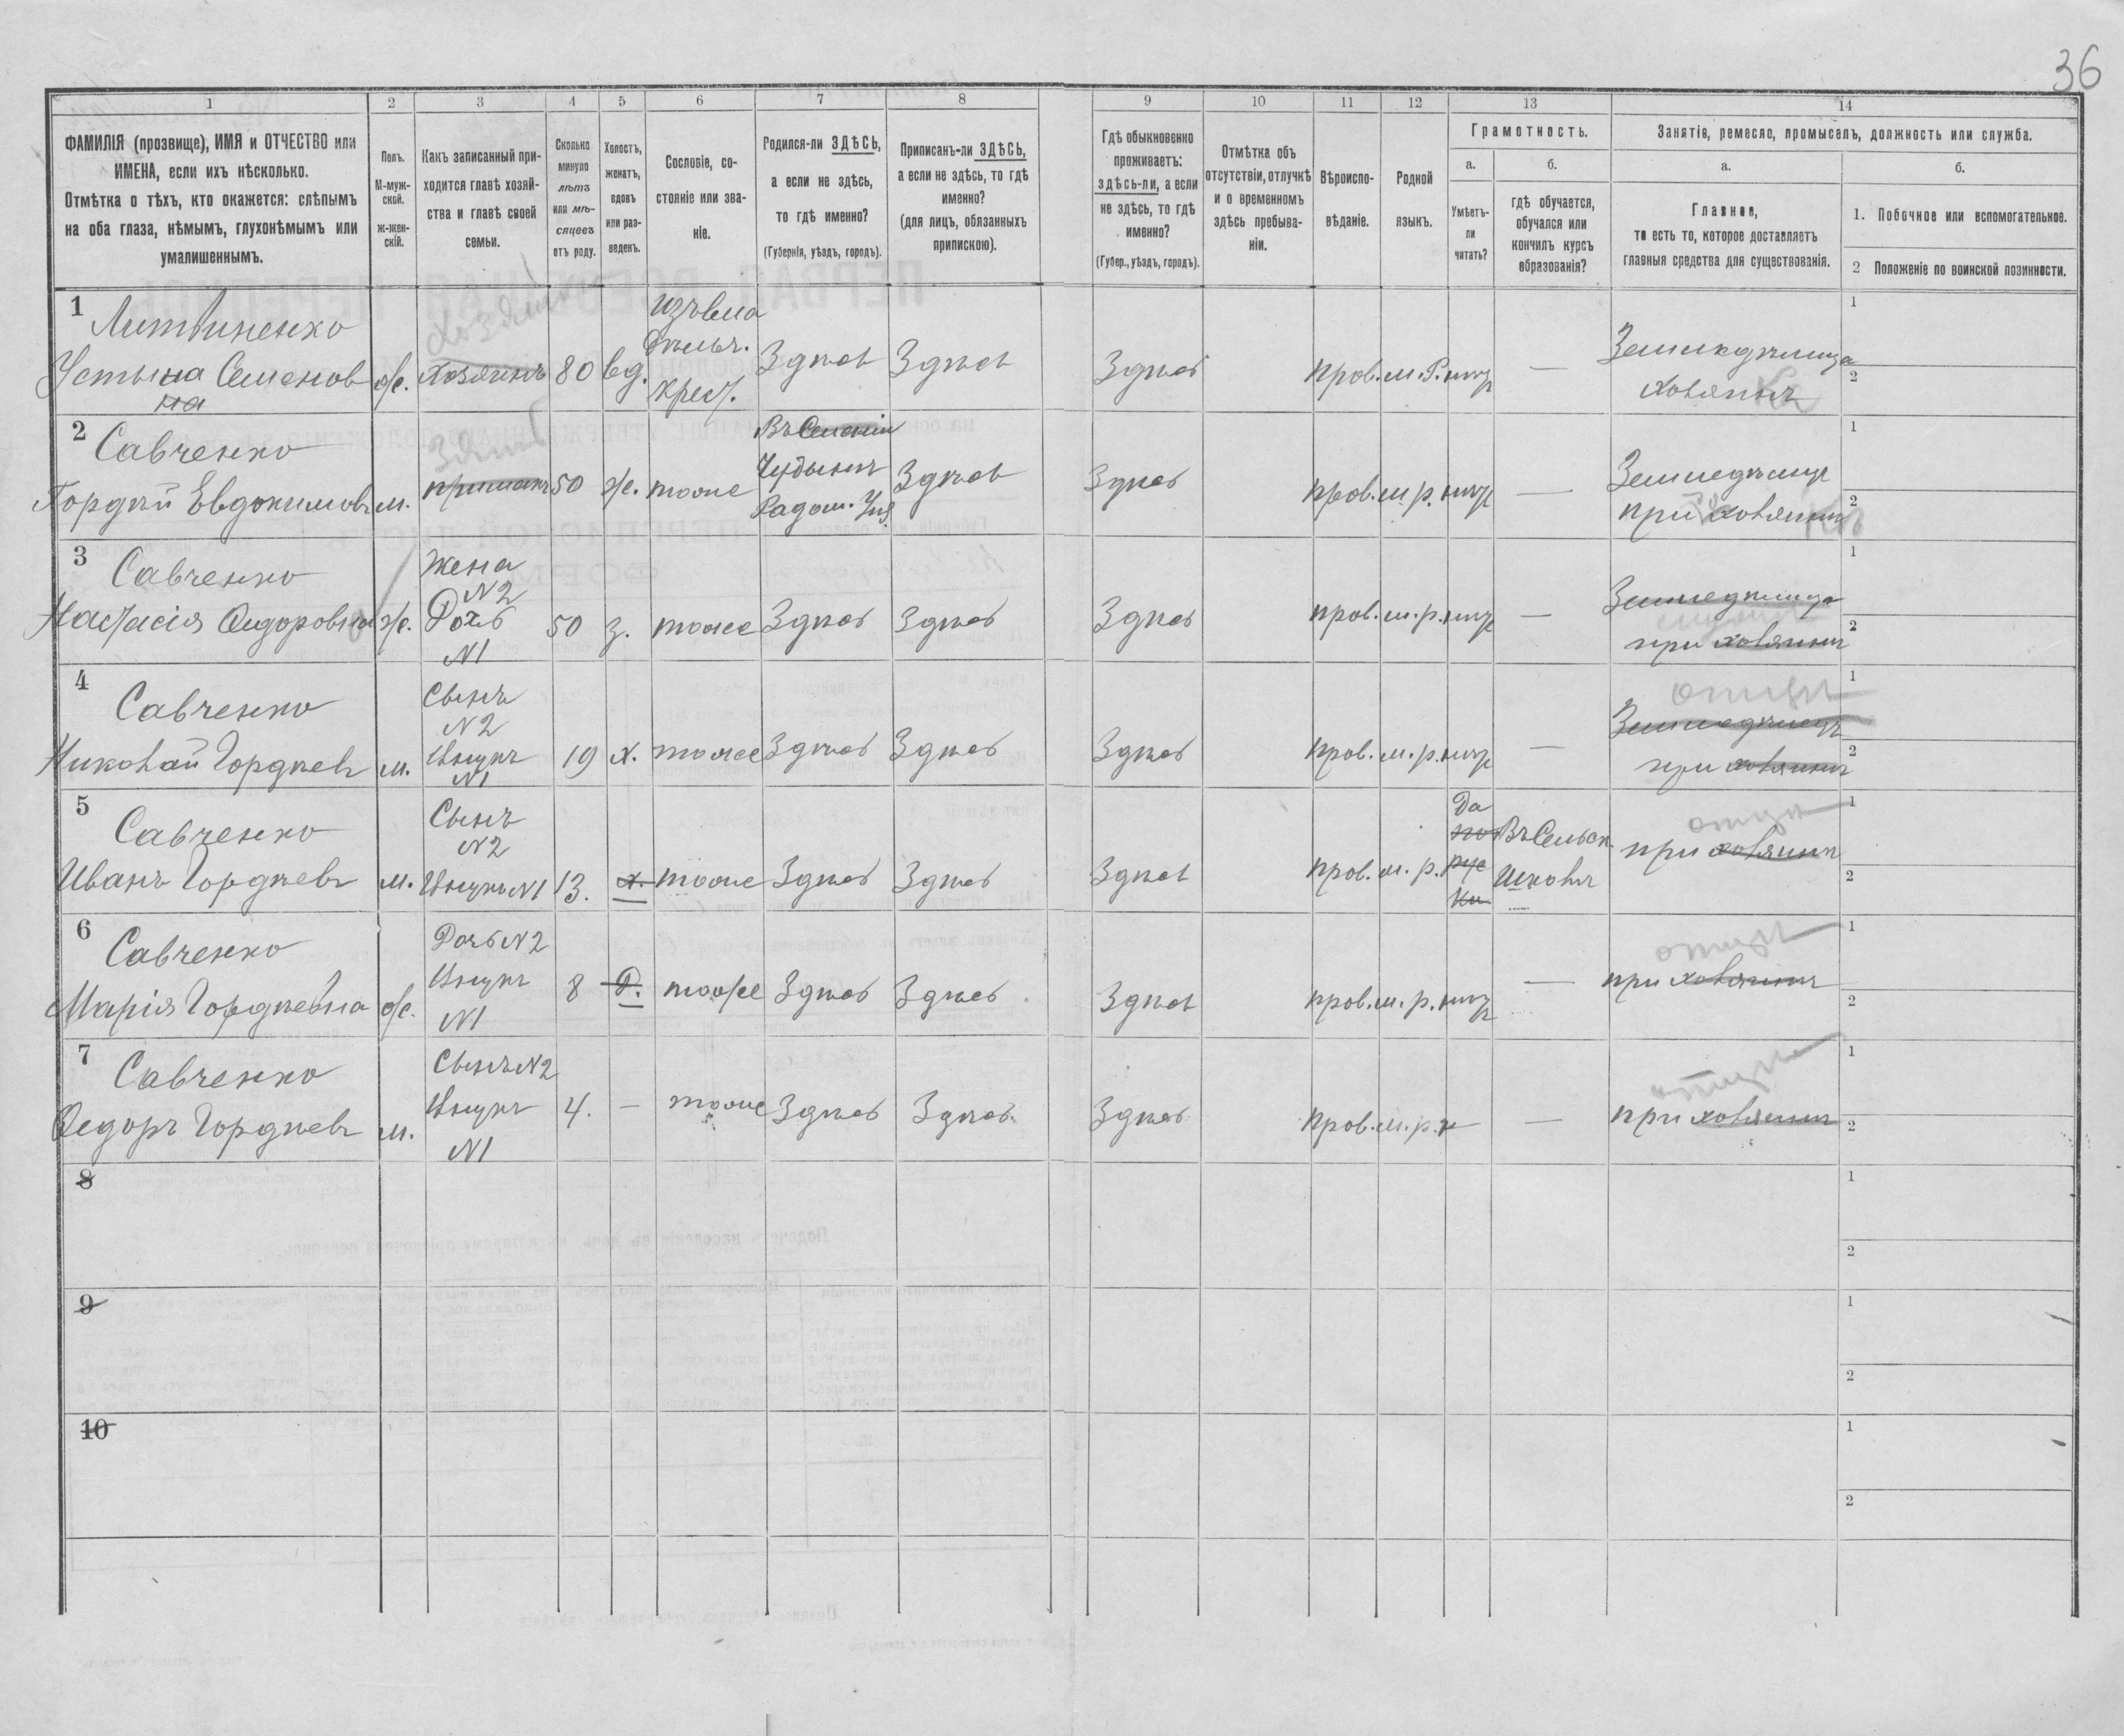 36
1 2 3 4 5 6 7 8 9 10 11 12 13 14
ФАМИЛІЯ (прозвище), ИМЯ и ОТЧЕСТВО или
ИМЕНА, если ихъ нѣсколько.
Отмѣтка о тѣхъ, кто окажется: слѣпымъ
на оба глаза, нѣмымъ, глухонѣмымъ или
умалишеннымъ.
Полъ.
М-муж-
ской.
ж-жен-
скій.
Какъ записанный при-
ходится главѣ хозяй-
ства и главѣ своей
семьи.
Сколько
минуло
лѣтъ
или мѣ-
сяцевъ
отъ роду.
Холостъ,
женатъ,
вдовъ
или раз-
веденъ.
Сословіе, со-
стояніе или зва-
ніе.
Родился-ли ЗДѢСЬ,
а если не здѣсь,
то гдѣ именно?
(Губернія, уѣздъ, городъ).
Приписанъ-ли ЗДѢСЬ,
а если не здѣсь, то гдѣ
именно?
(для лицъ, обязанныхъ
припискою).
Гдѣ обыкновенно
проживаетъ:
здѣсь-ли, а если
не здѣсь, то гдѣ
именно?
(Губер., уѣздъ, городъ).
Отмѣтка объ
отсутствіи, отлучкѣ
и о временномъ
здѣсь пребыва-
ніи.
Вѣроиспо-
вѣданіе.
Родной
языкъ.
Грамотность.
а.
Умѣетъ-
ли
читать?
б.
гдѣ обучается,
обучался или
кончилъ курсъ
образованія?
Занятіе, ремесло, промыселъ, должность или служба.
а.
Главное,
то есть то, которое доставляетъ
главныя средства для существованія.
б.
1. Побочное или вспомогательное.
2 Положеніе по воинской повинности.
1
Литвиненко
Устына Семенов
на
ж.
Хозяинъ
80
вд.
Изъ вла
дѣльч.
крест.
Здѣсь
Здѣсь
Здѣсь
прав.
м. р.
нѣтъ
—
Земледѣлица
хозяинъ
1
2
2
Савченко
Гордѣй Евдокимовъ
м.
примакъ
50
ж.
тоже
Въ Селеніи
Чудынѣ
Радом. Уѣз.
Здѣсь
Здѣсь
прав.
м. р.
нѣтъ
—
при хозяинѣ
1
2
3
Савченко
Настасія Ѳидоровна
ж.
Жена
N2
Дочь
N1
50
з.
тоже
Здѣсь
Здѣсь
Здѣсь
прав.
м. р.
нѣтъ
—
Земледѣлица
при хозяинѣ
1
2
4
Савченко
Николай Гордѣевъ
м.
Сынъ
N2
Внукъ
N1
19
х.
тоже
Здѣсь
Здѣсь
Здѣсь
прав.
м. р.
нѣтъ
—
отцѣ
Земледѣлецъ
при хозяинѣ
1
2
5
Савченко
Иванъ Гордѣевъ
м.
Сынъ
N2
Внукъ N1
13.
х.
тоже
Здѣсь
Здѣсь
Здѣсь
прав.
м. р.
Да
по
рус
ки
Въ Сельск.
Школѣ
отцѣ
при хозяинѣ
1
2
6
Савченко
Марія Гордѣевна
ж.
Дочь N2
Внукъ
N1
8
Д.
тоже
Здѣсь
Здѣсь
Здѣсь
прав.
м. р.
нѣтъ
—
отцѣ
при хозяинѣ
1
2
7
Савченко
Ѳедоръ Гордѣевъ
м.
Сынъ N2
Внукъ
N1
4.
—
тоже
Здѣсь
Здѣсь
Здѣсь
прав.
м. р.
н
—
отцѣ
при хозяинѣ
1
2
8
1
2
9
1
2
10
1
2